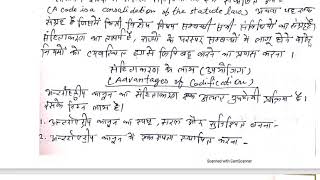 (A code is a consolidation of the statute law) अथवा यह एक
संग्रह है जिसमें किसी विशेष विषय सम्बन्धी सभी विधियों का संग्रह
संहिताकरण का अर्थ है, राज्यों के परस्पर सम्बन्धों में लागू होने वाले
नियमों को व्यवस्थित ढंग से लिपिबद्ध करने का प्रयास करना।
संहिताकरण के लाभ (उपयोगिता)
(Advantages of Codification)
अन्तर्राष्ट्रीय कानून का संहिताकरण एक अत्यन्त उपयोगी प्रक्रिया है।
इसके निम्न लाभ हैं।
1. अन्तर्राष्ट्रीय कानून को स्पष्ट, सरल और सुनिश्चित बनाना-
2. अन्तर्राष्ट्रीय कानून में एकरूपता स्थापित करना-
Scanned with CamScanner